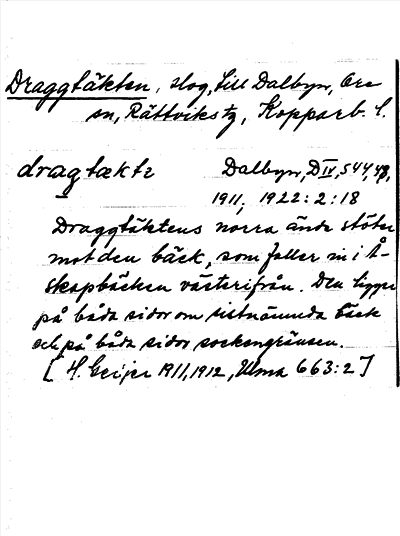 Draggtäkten, slog, till Dalbyn, Ore
sn, Rättviks tg, Kopparb. l.
dragtækte Dalbyn, D IV, 544, 48,
1911, 1922:2:18
Draggtäktens norra ände stöter
mot den bäck, som faller in i Å-
skapbäcken västerifrån. Den ligger
på båda sidor om sistnämnda bäck
och på båda sidor sockengränsen.
[H. Geijer 1911, 1912, Ulma 663:2]